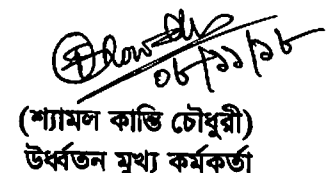 ০৮/১১/১৮
(শ্যামল কান্তি চৌধুরী)
উর্ধ্বতন মুখ্য কর্মকর্তা